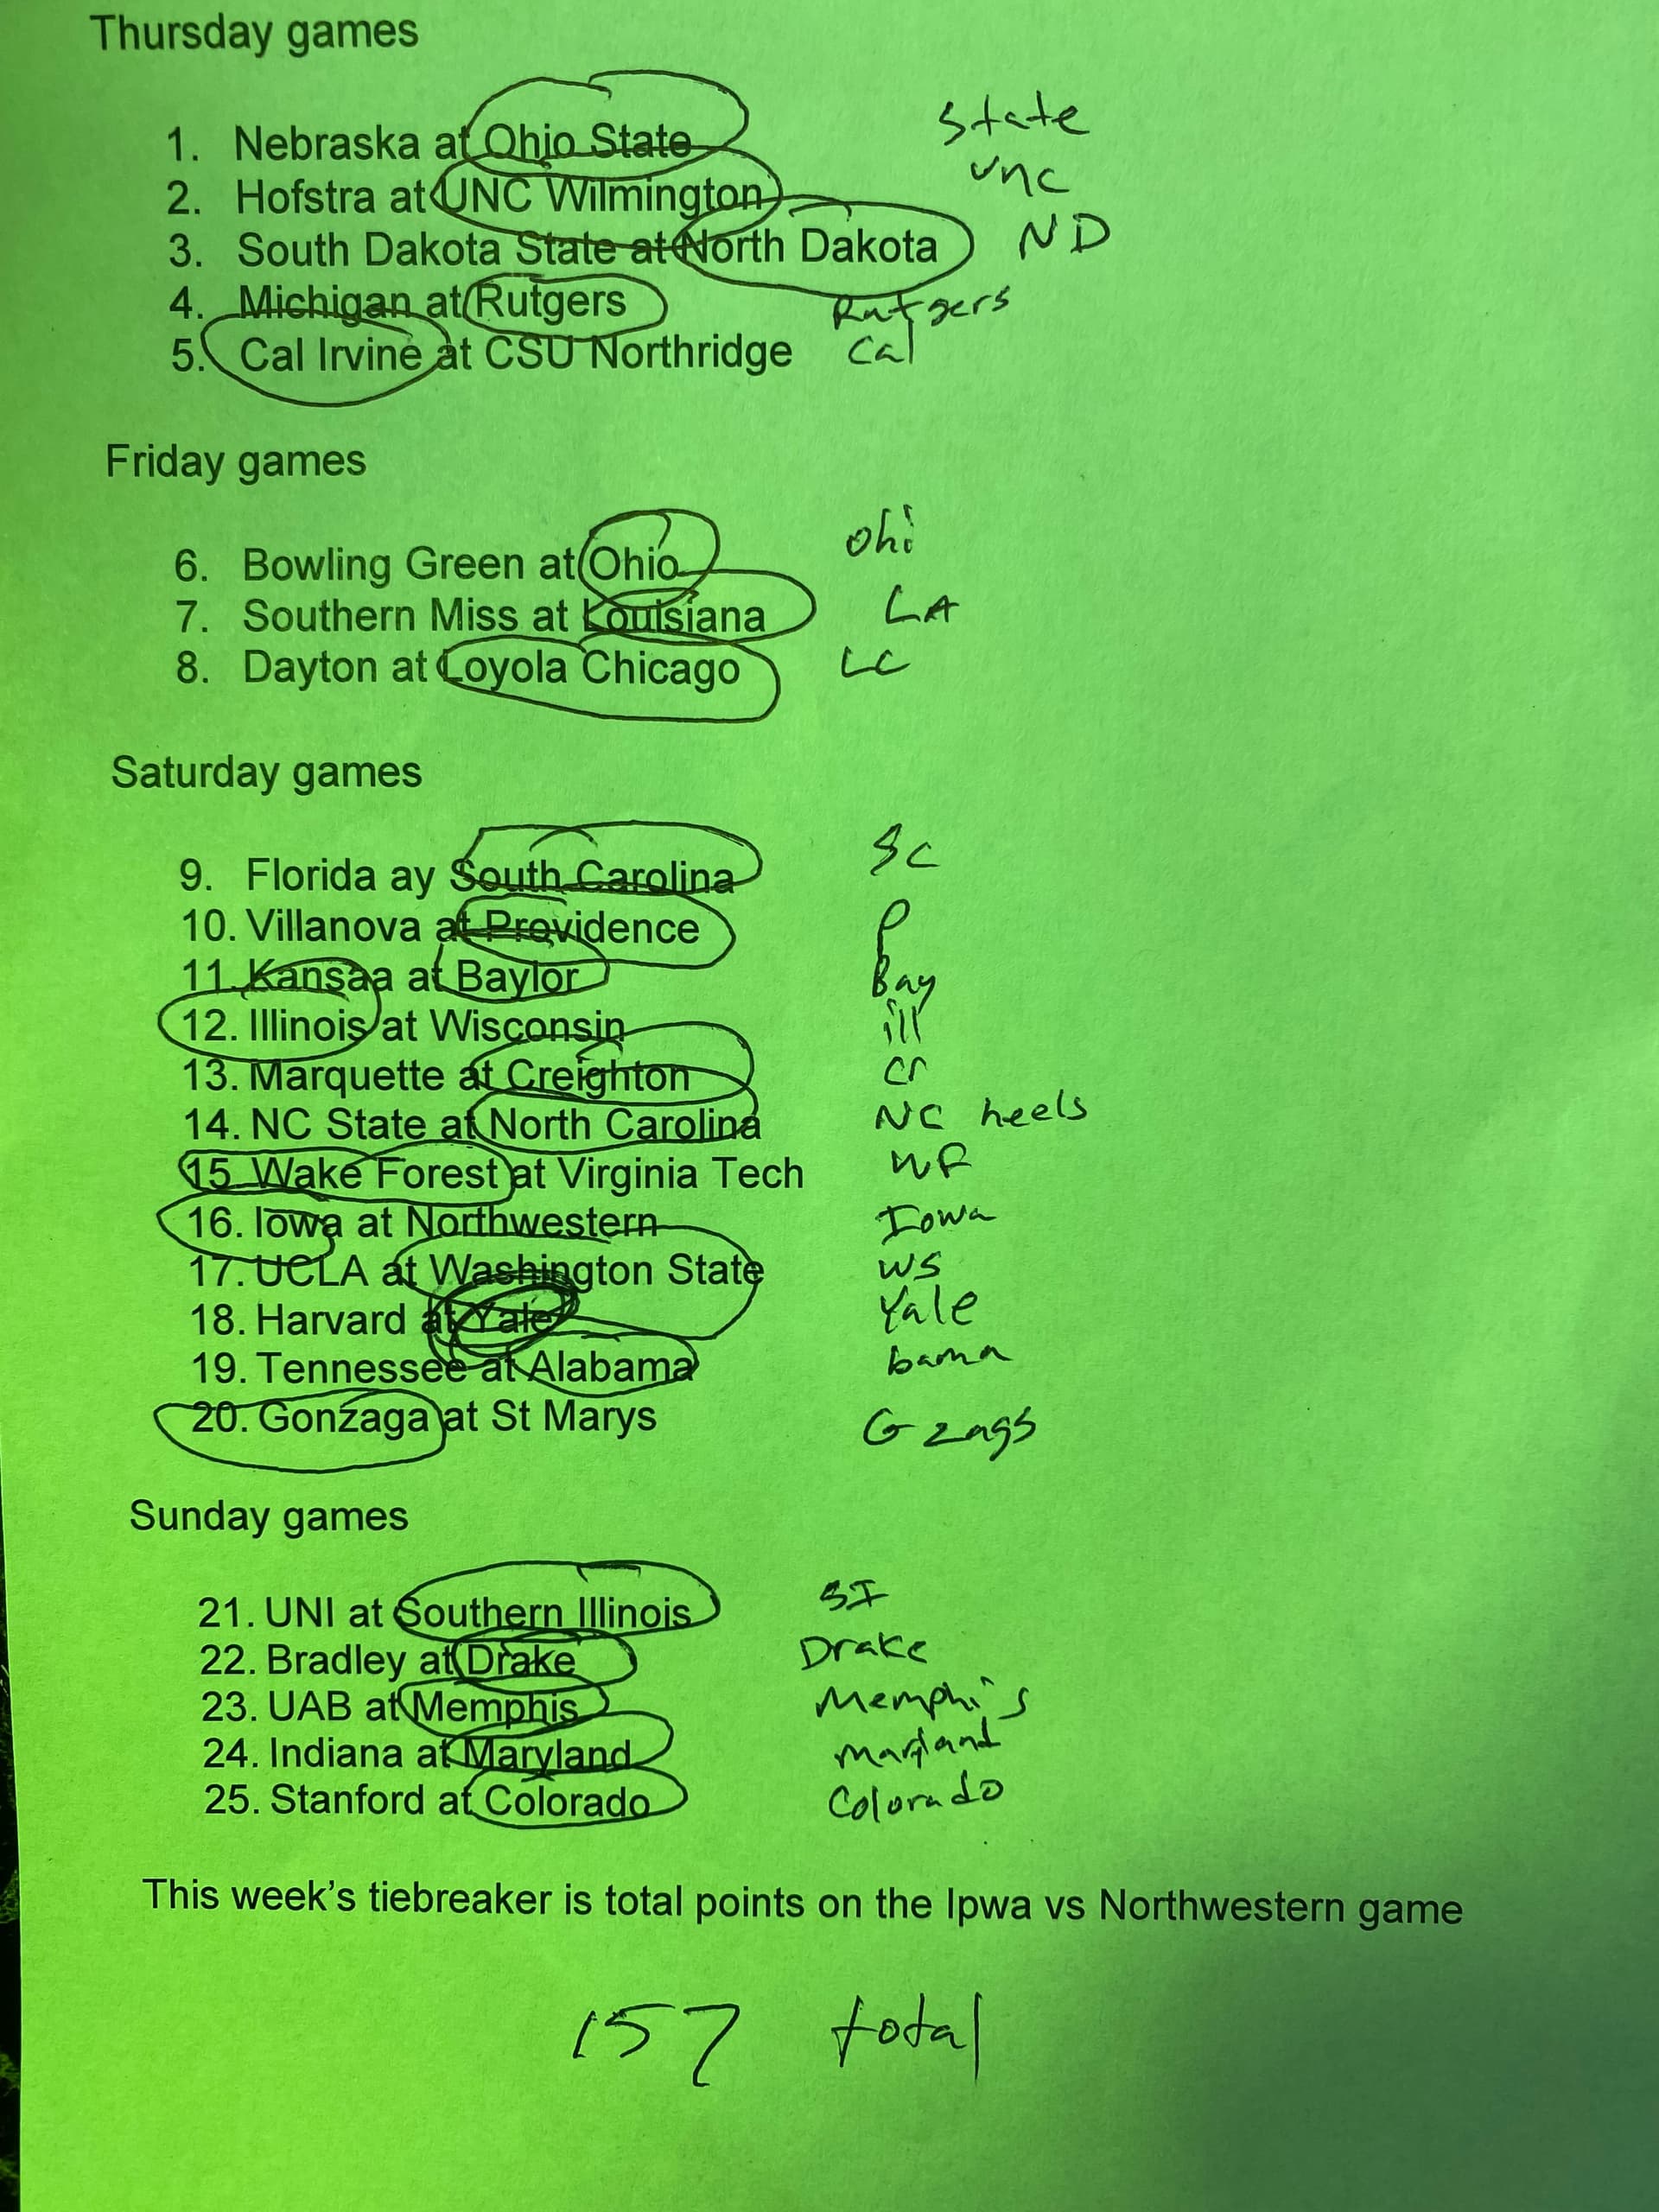 Thursday games
1. Nebraska at Ohio State State
2. Hofstra at UNC Wilmington unc
3. South Dakota State at North Dakota ND
4. Michigan at Rutgers Rutgers
5. Cal Irvine at CSU Northridge Cal
Friday games
6. Bowling Green at Ohio ohi
7. Southern Miss at Louisiana LA
8. Dayton at Loyola Chicago LC
Saturday games
9. Florida ay South Carolina SC
10. Villanova at Providence P
11. Kansaa at Baylor Bay
12. Illinois at Wisconsin ill
13. Marquette at Creighton cr
14. NC State at North Carolina NC heels
15. Wake Forest at Virginia Tech WF
16. Iowa at Northwestern Iowa
17. UCLA at Washington State WS
18. Harvard at Yale Yale
19. Tennessee at Alabama bama
20. Gonzaga at St Marys G zags
Sunday games
21. UNI at Southern Illinois SI
22. Bradley at Drake Drake
23. UAB at Memphis Memphis
24. Indiana at Maryland Maryland
25. Stanford at Colorado Colorado
This week's tiebreaker is total points on the Ipwa vs Northwestern game
157 total